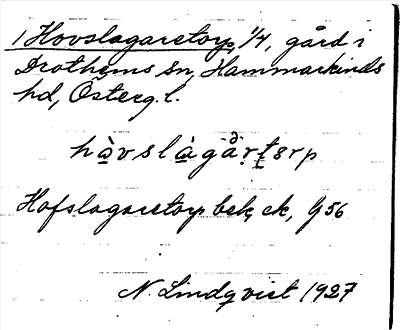 1 Hovslagaretorp, 1/4, gård i
Drothems sn, Hammarkinds
hd, Östergl.
hàvslàgàrtərp
Hofslagaretorp bek. ek, G 56
N. Lindqvist 1927